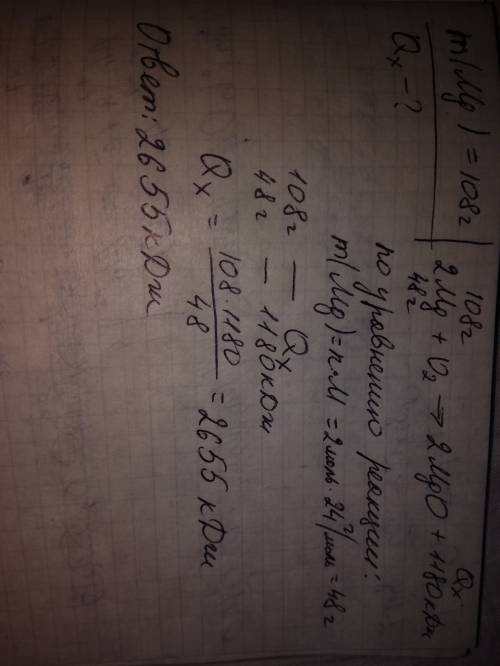 108г Qx
m(Mg) = 108г | 2Mg + O₂ → 2MgO + 1180кДж
48г
Qx – ?
по уравнению реакции:
m(Mg) = n·M = 2моль · 24 г/моль = 48г
108г — Qx
48г — 1180кДж
Qx = 108·1180 / 48 = 2655 кДж
Ответ: 2655кДж